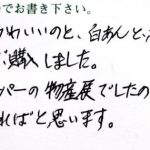 でお書き下さい。
かわいいのと、白あんと
購入しました。
パーの物産展でしたの
ればと思います。